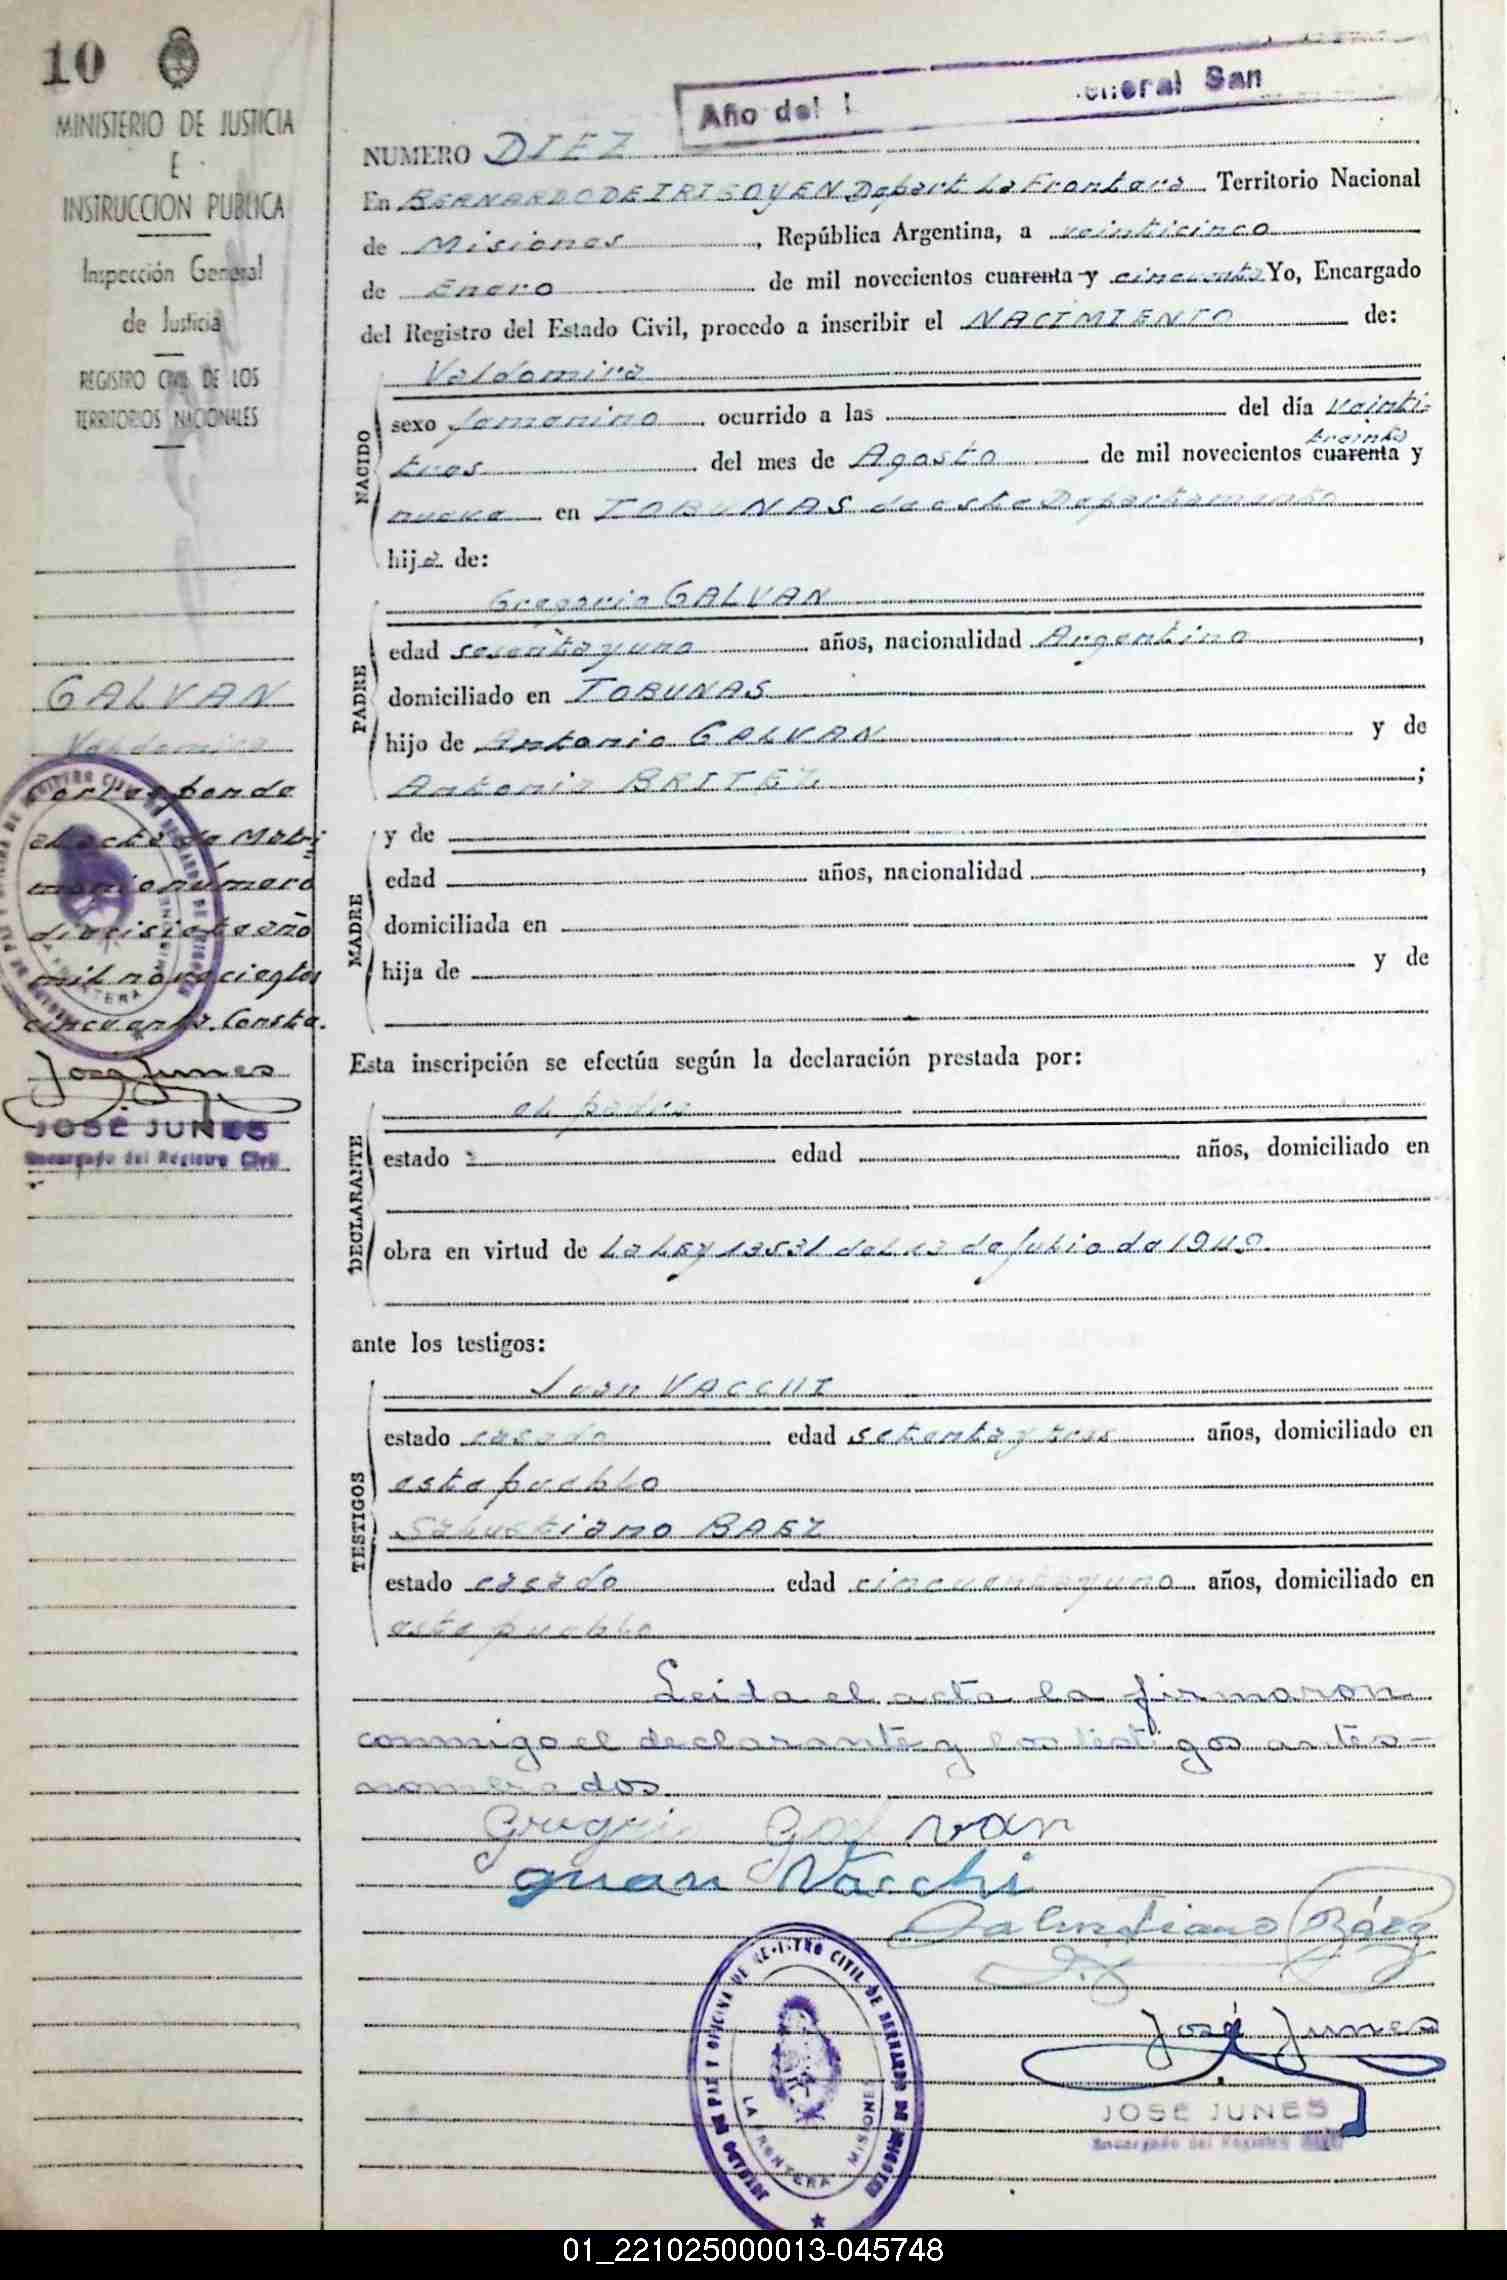 10
MINISTERIO DE JUSTICIA
E
INSTRUCCION PUBLICA
Inspección General
de Justicia
REGISTRO CIVIL DE LOS
TERRITORIOS NACIONALES
GALVAN
Valdomira
Corresponde
al acta de Matri
monio número
diecisiete año
mil novecientos
cincuenta. Consta.
José Junes
JOSÉ JUNES
Encargado del Registro Civil
Año del General San
NUMERO DIEZ
En BERNARDO DE IRIGOYEN Depart La Frontera Territorio Nacional
de Misiones, República Argentina, a veinticinco
de Enero de mil novecientos cuarenta y cincuenta Yo, Encargado
del Registro del Estado Civil, procedo a inscribir el NACIMIENTO de:
NACIDO
Valdomira
sexo femenino ocurrido a las del día veinti-
tres del mes de Agosto de mil novecientos cuarenta treinta y
nueve en TOBUNAS de este Departamento
hija de:
PADRE
Gregorio GALVAN
edad sesenta y uno años, nacionalidad Argentino,
domiciliado en TOBUNAS
hijo de Antonio GALVAN y de
Antonia BRITEZ;
MADRE
y de
edad años, nacionalidad,
domiciliada en
hija de y de
Esta inscripción se efectúa según la declaración prestada por:
DECLARANTE
el padre
estado edad años, domiciliado en
obra en virtud de La Ley 13531 del 13 de Julio de 1949.
ante los testigos:
TESTIGOS
Juan VACCHI
estado casado edad setenta y tres años, domiciliado en
este pueblo
Salustiano BAEZ
estado casado edad cincuenta y uno años, domiciliado en
este pueblo
Leida el acta la firmaron
conmigo el declarante y los testigos antes-
nombrados
Gregorio Galvan
Juan Vacchi
Salustiano Báez
José Junes
JOSÉ JUNES
Encargado del Registro Civil
JUZGADO DE PAZ Y OFICINA DE REGISTRO CIVIL DE BERNARDO DE IRIGOYEN
LA FRONTERA MISIONES
01_221025000013-045748